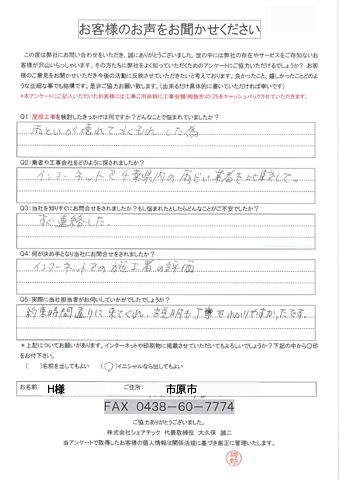 お客様のお声をお聞かせください
この度は弊社にお問い合わせをいただき、誠にありがとうございました。世の中には弊社の存在やサービスをご存知ないお
客様が沢山いらっしゃいます。その方たちに弊社をよく知っていただくためのアンケートにご協力いただけるでしょうか？ お客
様のご意見をお聞かせいただき今後の活動に反映させていただきたいと考えております。良かったこと、嬉しかったことどのよ
うな些細な事でも結構です。是非ご協力お願い致します。(出来るだけ具体的に書いていただければ幸いです)
*本アンケートにご記入いただいたお客様には工事ご用命時に工事金額(税抜き)の2%をキャッシュバックさせていただきます。
Q1:屋根工事を検討したきっかけは何ですか？どんなことで悩まれていましたか？
雨といが壊れて水もれした為
Q2:業者や工事会社をどのように探されましたか？
インターネットで千葉県内の雨どい業者を比較して。
Q3:当社を知りすぐにお問合せをされましたか？もし悩まれたとしたらどんなことがご不安でしたか？
すぐ連絡した。
Q4:何が決め手となり当社にお問合せをされましたか？
インターネットでの施工者の評価
Q5:実際に当社担当者がお伺いしていかがでしたでしょうか？
約束時間通りに来てくれ、説明も丁寧でわかりやすかったです。
*上記についてお願いがあります。インターネットや印刷物に掲載させていただいてもよろしいでしょうか？下記の中から〇印
をお付下さい。
( )名前を出してもよい (〇)イニシャルなら出してもよい
お名前: H様 ご住所: 市原市
FAX 0438-60-7774
ご協力ありがとうございました。
株式会社シェアテック 代表取締役 大久保 誠二
当アンケートで取得したお客様の個人情報は関係法規に基づき厳正に管理いたします。